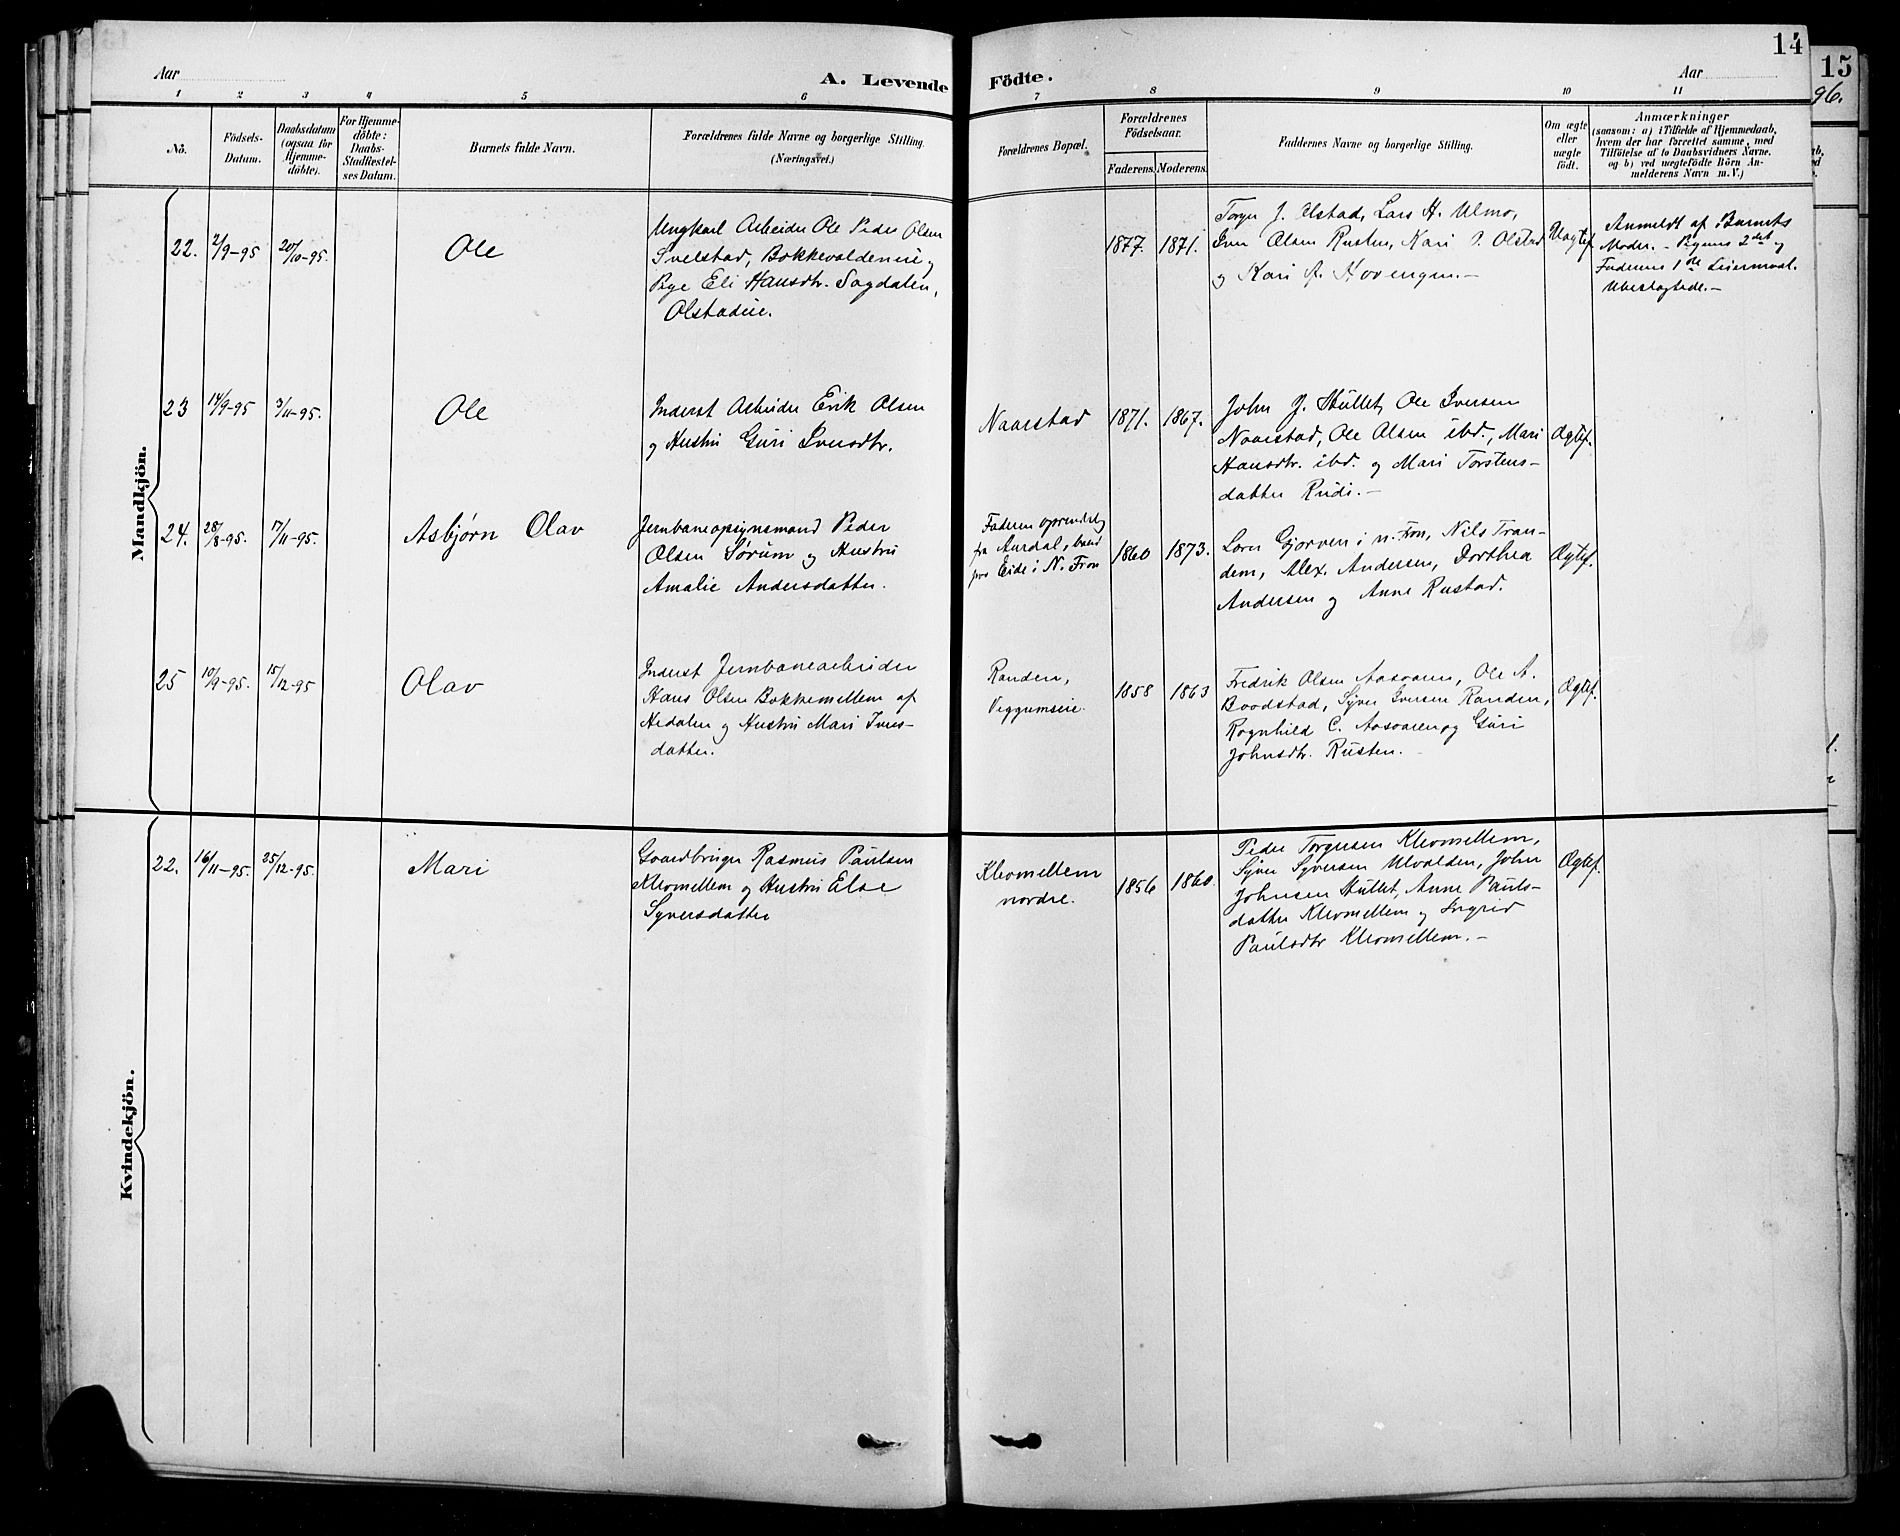 14
15
96.
Aar
A. Levende Födte.
Aar
1 2 3 4 5 6 7 8 9 10 11
No.
Födsels-
Datum.
Daabsdatum
(ogsaa for
Hjemme-
döbte).
For Hjemme-
döbte:
Daabs-
Stadfæstel-
ses Datum.
Barnets fulde Navn.
Forældrenes fulde Navne og borgerlige Stilling.
(Næringsvei.)
Forældrenes Bopæl.
Forældrenes
Födselsaar.
Faderens. Moderens.
Faddernes Navne og borgerlige Stilling.
Om ægte
eller
uægte
födt.
Anmærkninger
(saasom: a) i Tilfælde af Hjemmedaab,
hvem der har forrettet samme, med
Tilföielse af to Daabsvidners Navne.
og b) ved uægtefödte Börn An-
melderens Navn m. V.)
Mandkjön.
22. 2/9-95 20/10-95. Ole
Ungkarl Arbeider Ole Peder Olsen
Svelstad, Bakkevoldeneie og
Pige Eli Hansdtr. Sagdalen,
Olstadeie.
1877. 1871.
Torger J. Olstad, Lars H. Ulmo,
Iver Olsen Rusten, Kari O. Olstad
og Kari A. Hovengen.-
Uægtef.
Anmeldt af Barnets
Moder. - Pigens 2det og
Faderens 1ste Leiermaal.
Ubeslægtede.-
23 14/9-95 3/11-95. Ole
Inderst Arbeider Erik Olsen
og Hustru Guri Iversdtr.
Naarstad 1871. 1867.
John J. Stullet, Ole Iversen
Naarstad, Ole Olsen ibd., Mari
Hansdtr. ibd. og Mari Torstens-
datter Rudi.-
Ægtef.
24. 28/8-95. 17/11-95. Asbjørn Olav
Jernbaneopsynsmand Peder
Olsen Sørum og Hustru
Amalie Andersdatter.
Faderen oprindelig
fra Aurdal,
Eide i N. Fron
1860 1873.
Lars Gjorven i n. Fron, Nils Tran-
dem, Alex. Andersen, Dorthea
Andersen og Anne Rustad.
Ægtef.
25 10/9-95. 15/12-95 Olav
Inderst Jernbanearbeider
Hans Olsen Bakkemellem af
Hedalen og Hustru Mari Ivers-
datter.
Randen,
Veggumseie.
1858 1863
Fredrik Olsen Aasaaren, Ole A.
Baadstad, Syver Iversen Randen,
Ragnhild C. Aasaaren og Guri
Johnsdtr. Rusten.-
Ægtef.
Kvindekjön.
22. 16/11-95. 25/12-95. Mari
Gaardbruger Rasmus Paulsen
Kleomellem og Hustru Else
Syversdatter
Kleomellem
nordre.
1856 1860.
Peder Torgersen Kleomellem,
Syver Syversen Ulvolden, John
Johnsen Stullet, Anne Pauls-
datter Kleomellem og Ingrid
Paulsdtr Kleomellem.-
Ægtef.